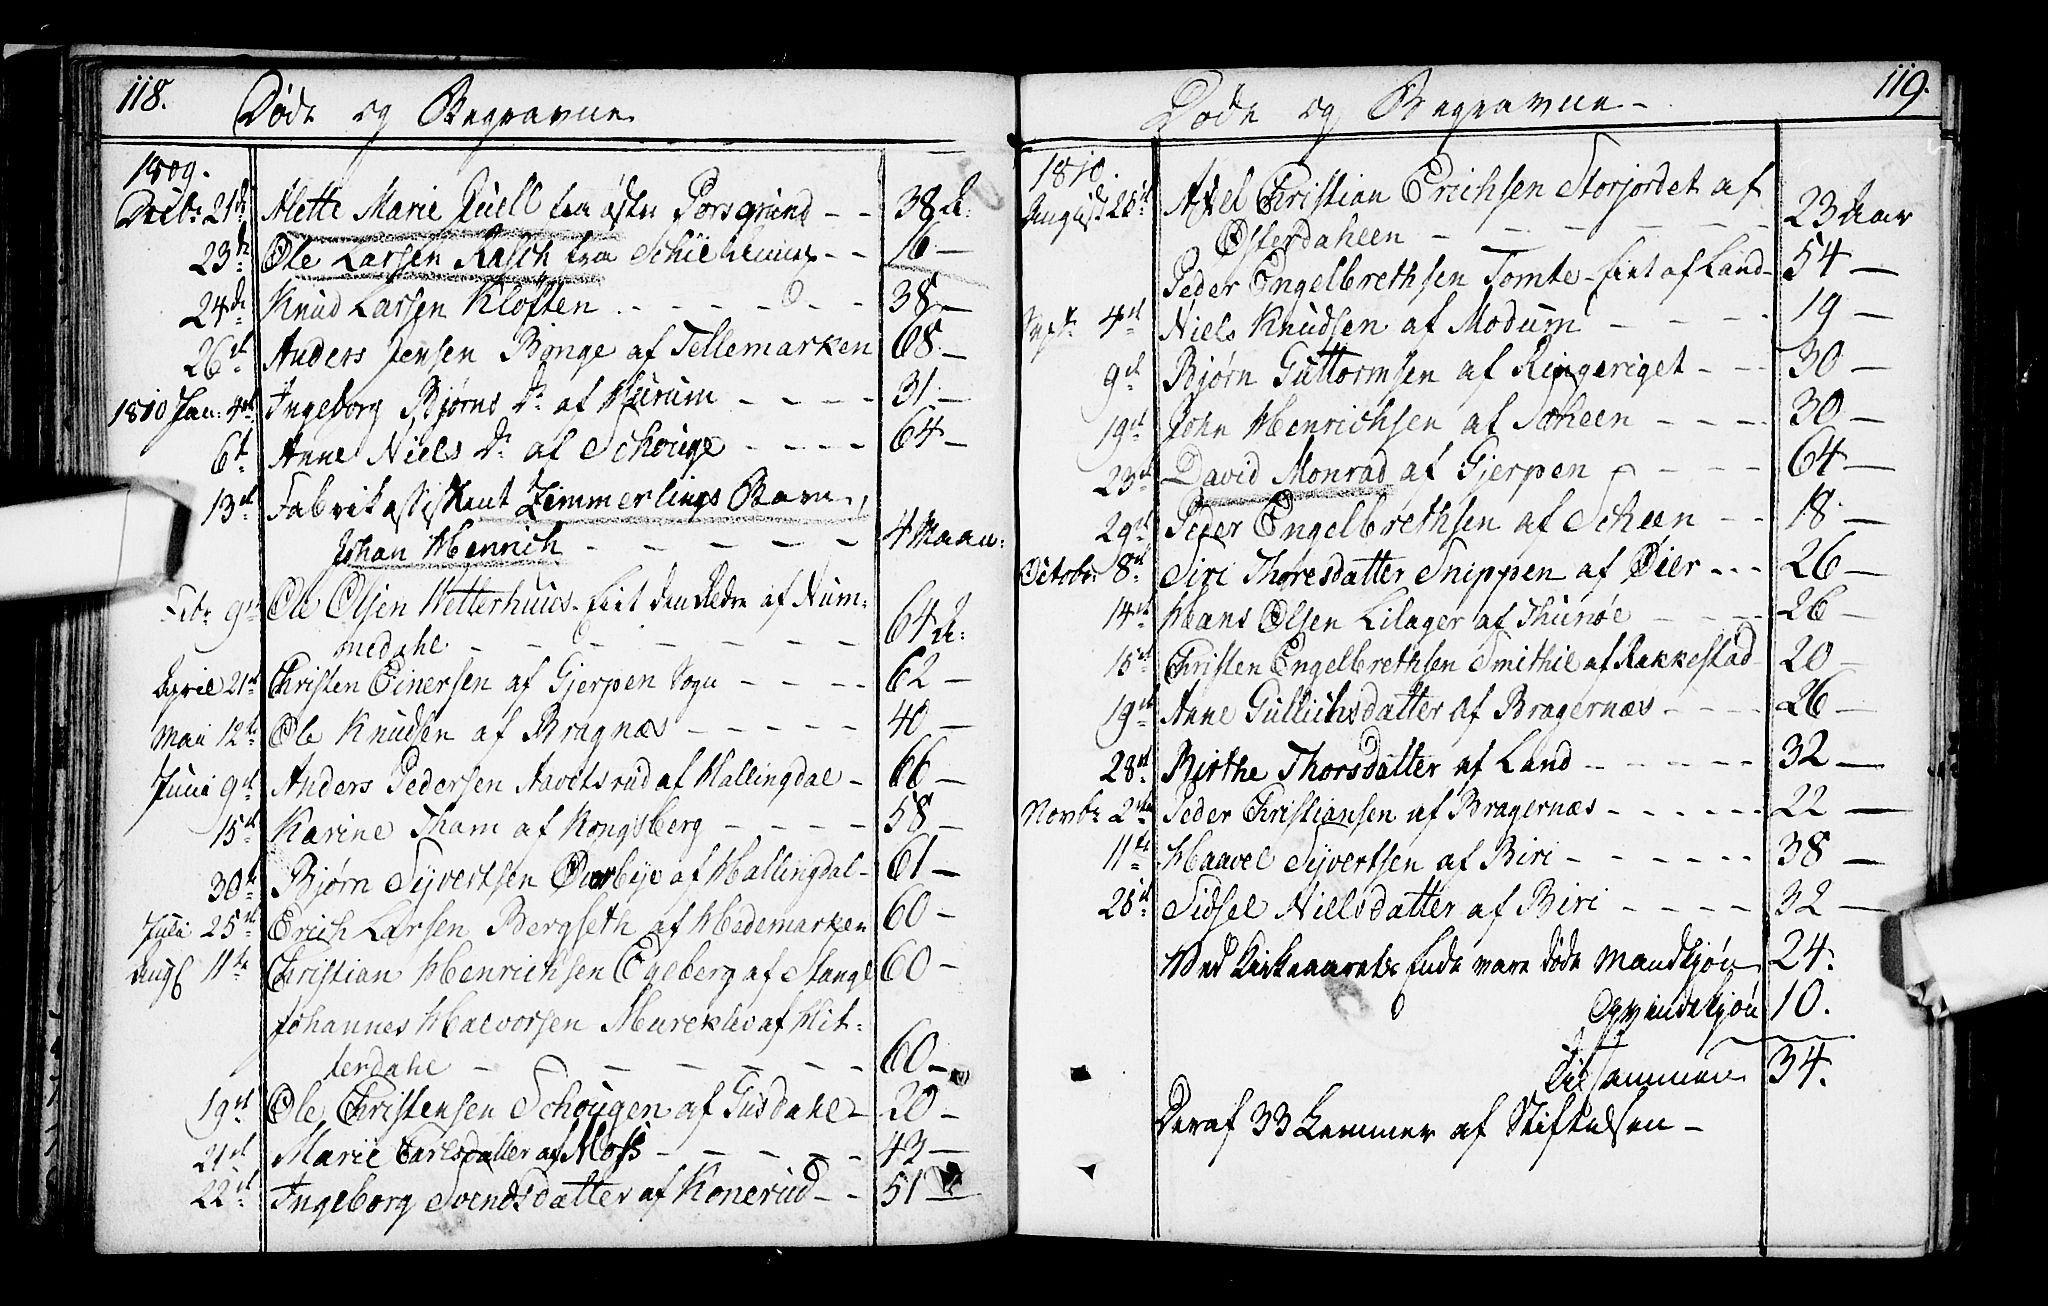 118.
Døde og Begravne
1809.
Decbr: 21de Alette Marie Juell fra østre Porsgrund - - 38 A:
23de Ole Larsen Rasch fra - - 16 —
24de Knud Larsen Kloften - - - - 38 —
26de Anders Jensen Bonge af Tellemarken 68 —
1810 Jan: 4de Ingeborg Bjørns Dr af Hurum - - - - 31 —
6te Anne Niels Dr af Schouge - - - - 64 —
13de Fabrikassistent Zimmerlings Barn,
Johan Henrich - - - - - 4 Maan:
Febr 9de Ole Olsen Wetterhuus - den Ældre af Num-
medahl - - - - - - 64 A:
April 21de Christen Einersen af Gjerpen Sogn - - - - 62 —
Mai 12te Ole Knudsen af Bragnæs - - - - - 40 —
Juni 9de Anders Pedersen af Hallingdal - 66 —
15de Karine Tham af Kongsberg - - - - 58 —
30te Bjørn Syvertsen Overbye af Hallingdal - 61 —
Juli 25de Erich Larsen Bergseth af Hedemarken 60 —
Aug 11te Christian Henrichsen Egeberg af Stange 60 —
Johannes Halvorsen af Hit-
terdahl - - - - - - 60 —
19de Ole Christensen Schougen af Gusdahl - 20 —
21de Marie Carlsdatter af Moss - - - - - 43 —
22de Ingeborg Svendsdatter af Konerud - - 51 —
119.
Døde og Begravne -
1810
August 25de Axel Christian Erichsen Storjordet af
Østerdahlen - - - - - - 23 Aar
Peder Engelbrethsen Tomte - af Land - 54 —
Sept: 4de Niels Knudsen af Modum - - - - 19 —
9de Bjørn Guttormsen af Ringeriget - - - 30 —
19de John Henrichsen af - - - - 30 —
23de David Monrad af Gjerpen - - - - 64 —
29de Peder Engelbrethsen af Scheen - - 18 —
Octobr: 8de Siri Thoresdatter Snippen af Øier - - - 26 —
14de Hans Olsen Lilager af Thunøe - - - - 26 —
15de Christen Engelbrethsen Smithie af Rakkestad - 20 —
19de Anne Gullichsdatter af Bragernæs - - - - 26 —
28de Birthe Thorsdatter af Land - - - - - 32 —
Novbr: 2den Peder Christiansen af Bragernæs - - - - - 22 —
11te Haavel Syvertsen af Biri - - - - - - 38 —
28de Sidsel Nielsdatter af Biri - - - - 32 —
Ved Kirkeaarets Ende vare døde Mandkjøn 24.
Og Qvindekjøn 10.
Tilsammen 34.
Deraf 33 Lemmer af Stiftelsen -